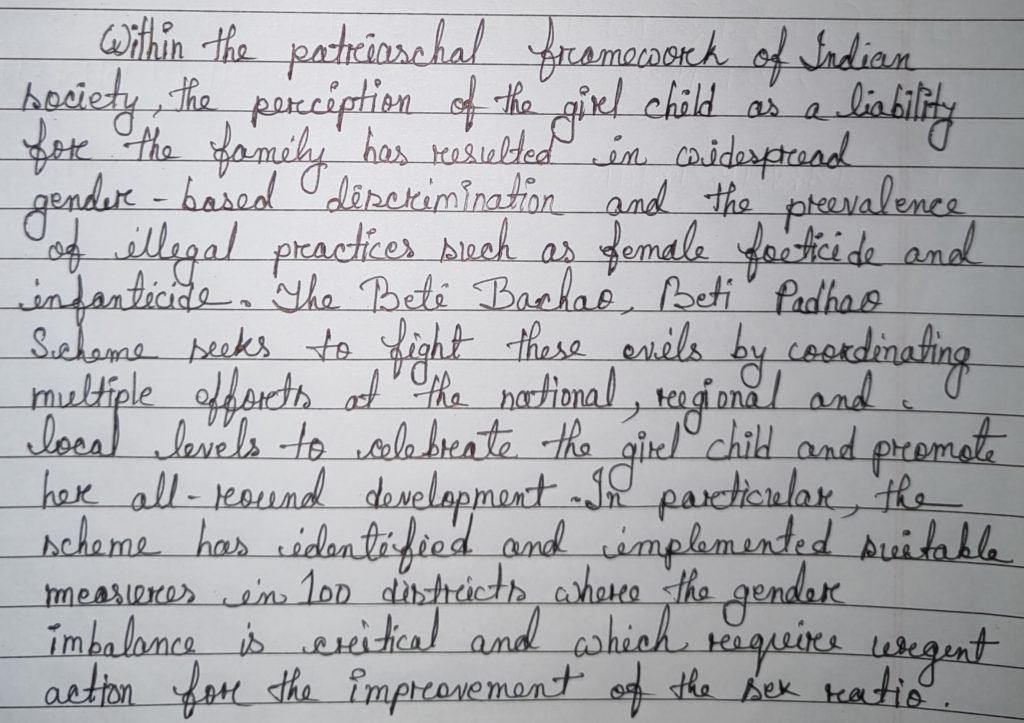 Within the patriarchal framework of Indian
society, the perception of the girl child as a liability
for the family has resulted in widespread
gender-based discrimination and the prevalence
of illegal practices such as female foeticide and
infanticide. The Beti Bachao, Beti Padhao
Scheme seeks to fight these evils by coordinating
multiple efforts at the national, regional and
local levels to celebrate the girl child and promote
her all-round development. In particular, the
scheme has identified and implemented suitable
measures in 100 districts where the gender
imbalance is critical and which require urgent
action for the improvement of the sex ratio.